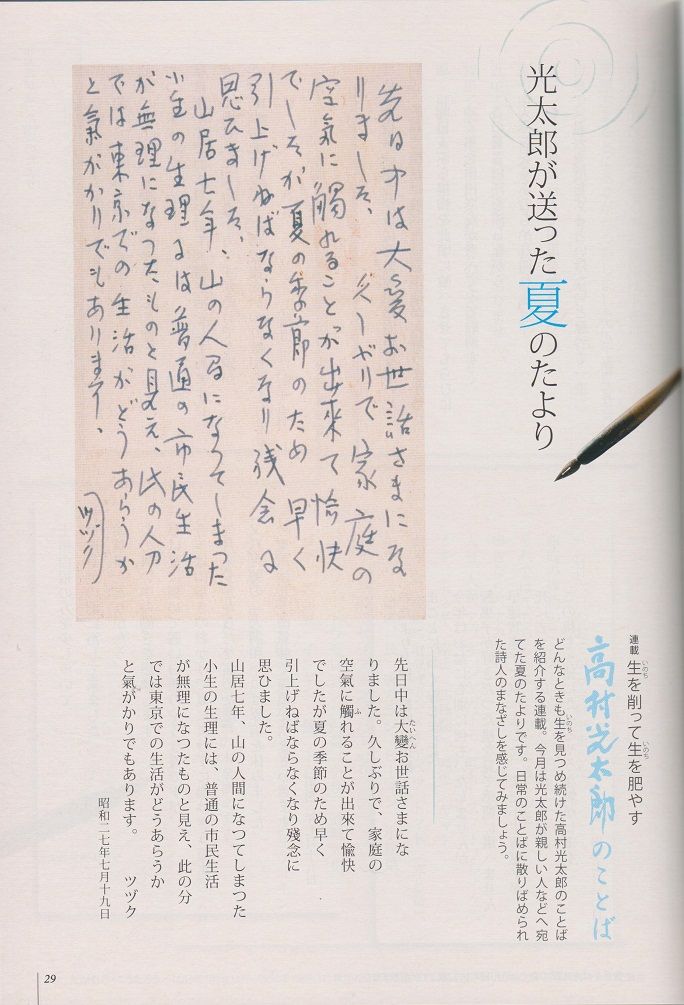 光太郎が送った夏のたより
連載 生を削って生を肥やす
いのち
いのち
高村光太郎のことば
どんなときも生を見つめ続けた高村光太郎のことば
いのち
を紹介する連載。今月は光太郎が親しい人などへ宛
てた夏のたよりです。日常のことばに散りばめられ
た詩人のまなざしを感じてみましょう。
先日中は大變お世話さまにな
りました、久しぶりで家庭の
空氣に觸れることが出来て愉快
でしたが夏の季節のため早く
引上げねばならなくなり残念に
思ひました、
山居七年、山の人間になつてしまつた
小生の生理には普通の市民生活
が無理になつたものと見え、此の分
では東京での生活がどうあらうか
と氣がかりでもあります、
ツヅク
先日中は大變お世話さまにな
たいへん
りました。久しぶりで、家庭の
空氣に觸れることが出來て愉快
ふ
でしたが夏の季節のため早く
引上げねばならなくなり殘念に
思ひました。
山居七年、山の人間になつてしまつた
小生の生理には、普通の市民生活
が無理になつたものと見え、此の分
では東京での生活がどうあらうか
と氣がかりでもあります。 ツヅク
昭和二七年七月十九日
29